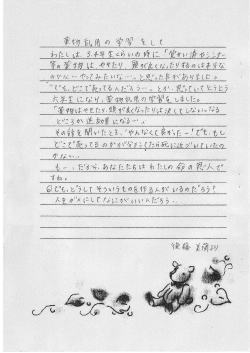 薬物乱用の学習をして
わたしは、3、4年生くらいの時に「覚せい済やシンナー
等の薬物は、やせたり、頭が良くなったりするのは本当な
のかな…やってみたいな…。と思った事がありました。
「でも、どこで売ってるんだろう…。とか思っていてとうとう
六年生になり、薬物乱用の学習をしました。
「薬物はやせたり、頭が良くなったりは決してしない。なる
どころか逆効果になる…。
その話を聞いたとき、「やんなくて良かった…！でも、もし
どこで売ってるのかが分かったら死に近づいていたの
かな…。
も…、だから、あなたたちはわたしの命の恩人で
すね。
でも、どうしてそういうものを作る人がいるのだろう？
人をダメにしてなにがいいんだろう…
後藤
より